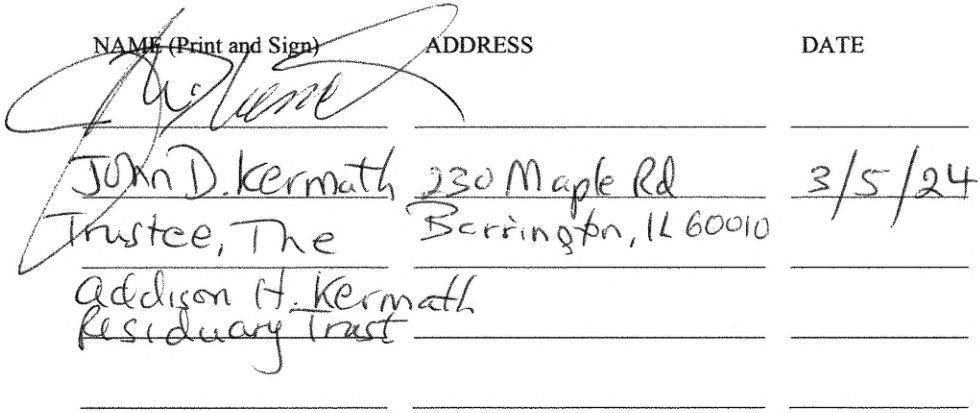 NAME (Print and Sign) ADDRESS DATE
John D. Kermath 230 Maple Rd 3/5/24
Trustee, The Barrington, IL 60010
Addison H. Kermath
Residuary Trust